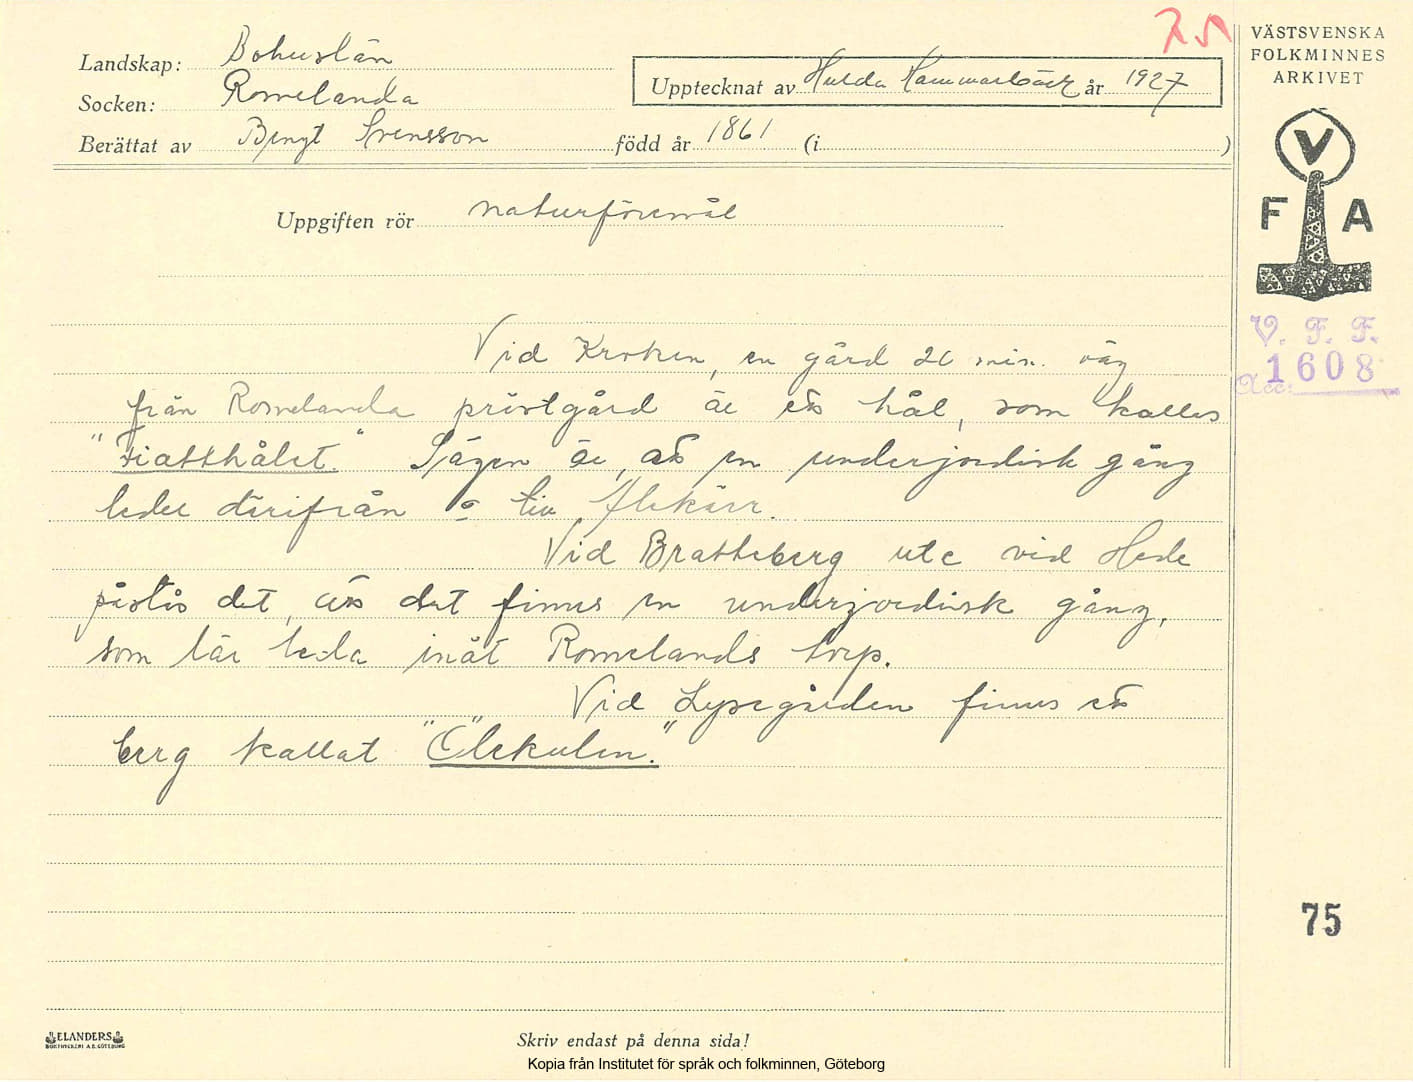 Landskap: Bohuslän
Socken: Romelanda
Berättat av Bengt Svensson född år 1861 (i )
Upptecknat av Hulda Hammarbäck år 1927
VÄSTSVENSKA
FOLKMINNES
ARKIVET
V
F A
V. F. F.
Acc: 1608
Uppgiften rör naturföremål
Vid Kroken, en gård 20 min. väg
från Romelanda prästgård är ett hål, som kallas
"Fiatthålet." Sägen är, att en underjordisk gång
leder därifrån till Alekärr.
Vid Bratteberg ute vid Hede
påstås det, att det finns en underjordisk gång,
som lär leda inåt Romelands torp.
Vid Lysegården finns ett
berg kallat "Ölekulen."
75
ELANDERS
BOKTRYCKERI A.B. GÖTEBORG
Skriv endast på denna sida!
Kopia från Institutet för språk och folkminnen, Göteborg